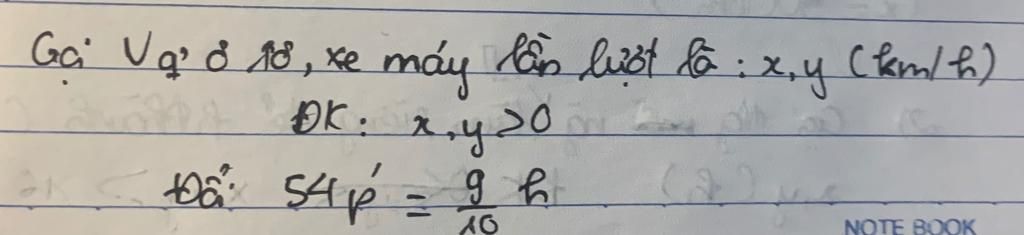 Gọi Vq' ô tô, xe máy lần lượt là : x, y (km/h)
ĐK : x, y > 0
Đổi: 54 p' = 9/10 h
NOTE BOOK